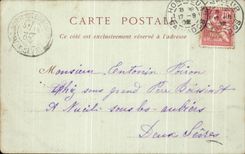 CARTE POSTALE
Ce côté est exclusivement réservé à l'adresse
Monsieur Antonin Poiron
chez son grand Père Boissinot
à Nueil sous les aubiers
Deux Sèvres